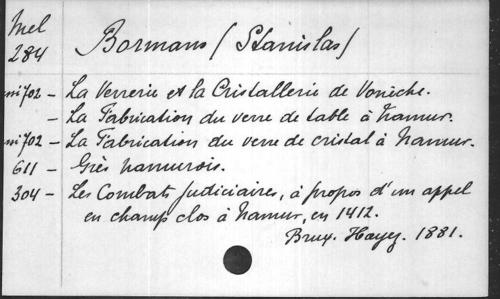 Mel
284
Bormans (Stanislas)
mi702 - La Verrerie et la Cristallerie de Vonèche.
- La Fabrication du verre de table à Namur.
mi702 - La Fabrication du verre de cristal à Namur.
611 - Grès namurois.
304 - Les Combats judiciaires, à propos d'un appel
en champ clos à Namur, en 1412.
Brux. Hayez. 1881.